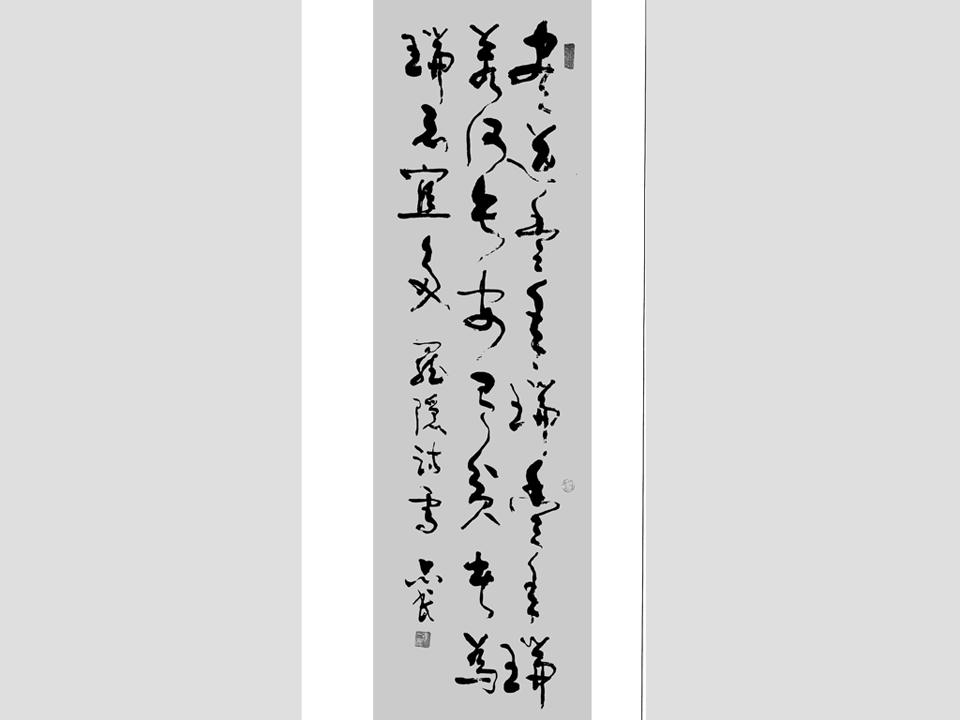 盡道豐年瑞豐年瑞
若何長安有貧者為
瑞宜多 羅隱詩雪